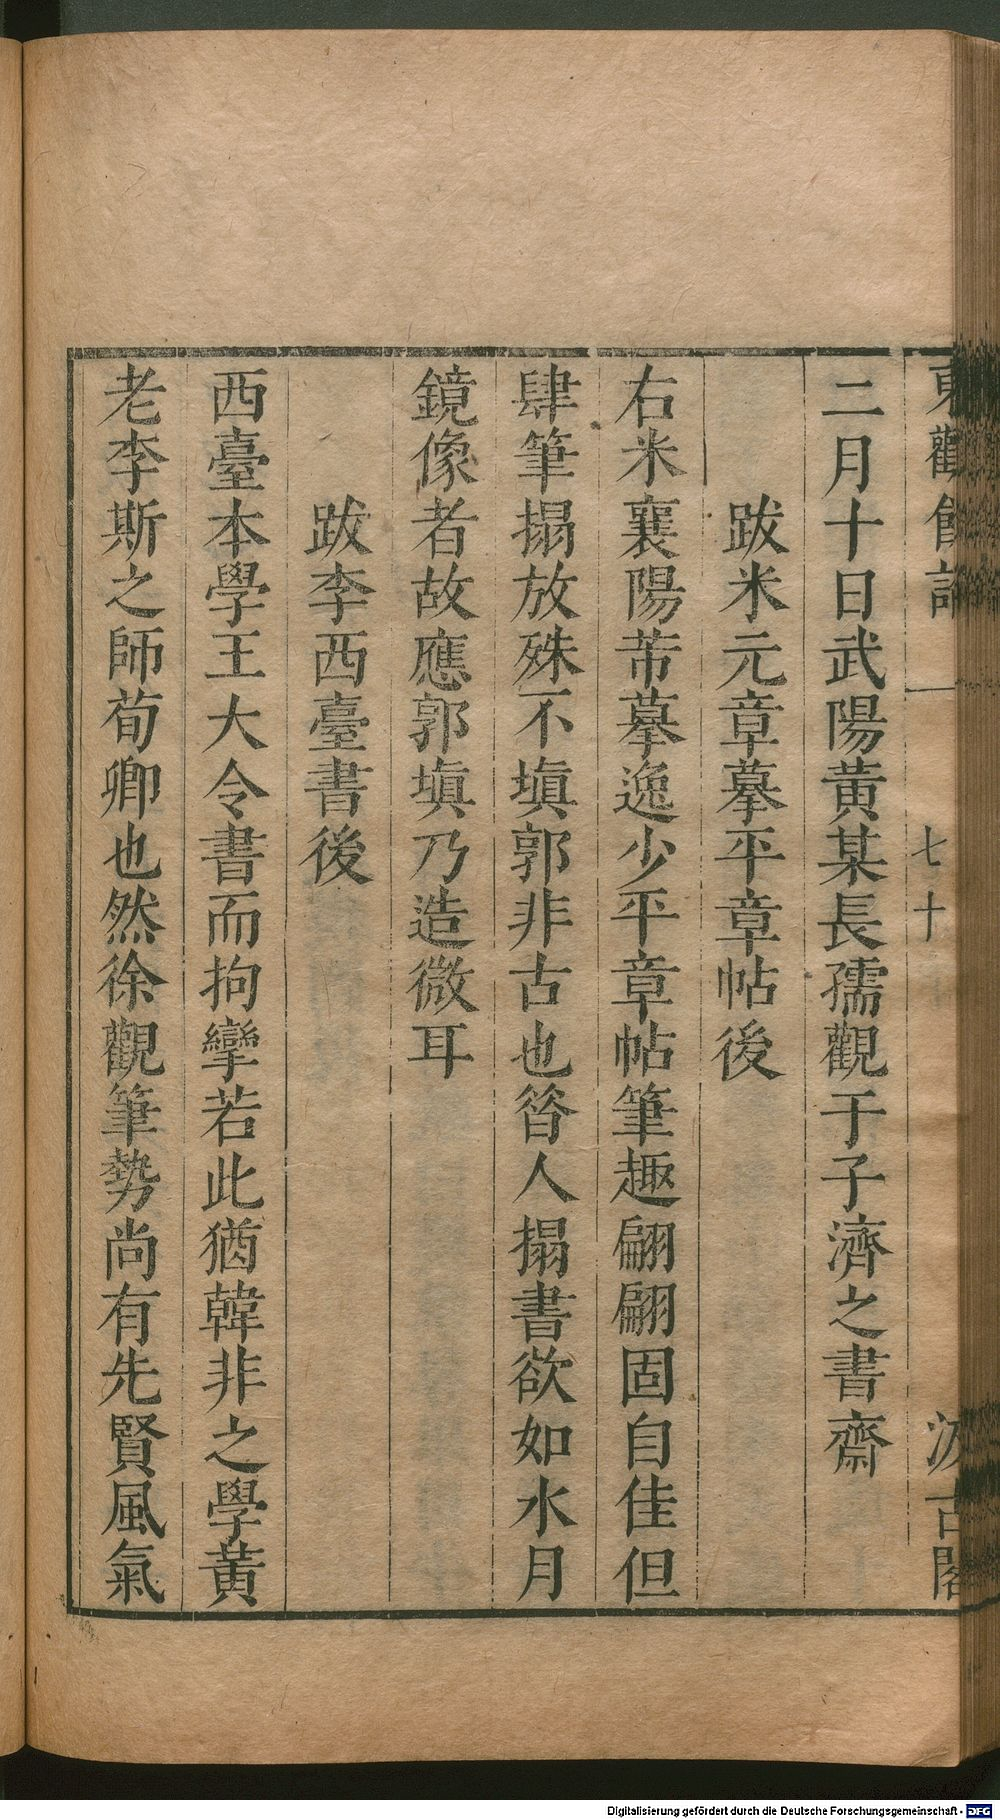 東觀餘論 七十 汲古閣
二月十日武陽黃某長孺觀于子濟之書齋
跋米元章摹平章帖後
右米襄陽芾摹逸少平章帖筆趣翩翩固自佳但
肆筆搨放殊不塡郭非古也昝人搨書欲如水月
鏡像者故應郭塡乃造微耳
跋李西臺書後
西臺本學王大令書而拘攣若此猶韓非之學黃
老李斯之師荀卿也然徐觀筆勢尚有先賢風氣
Digitalisierung gefördert durch die Deutsche Forschungsgemeinschaft - DFG